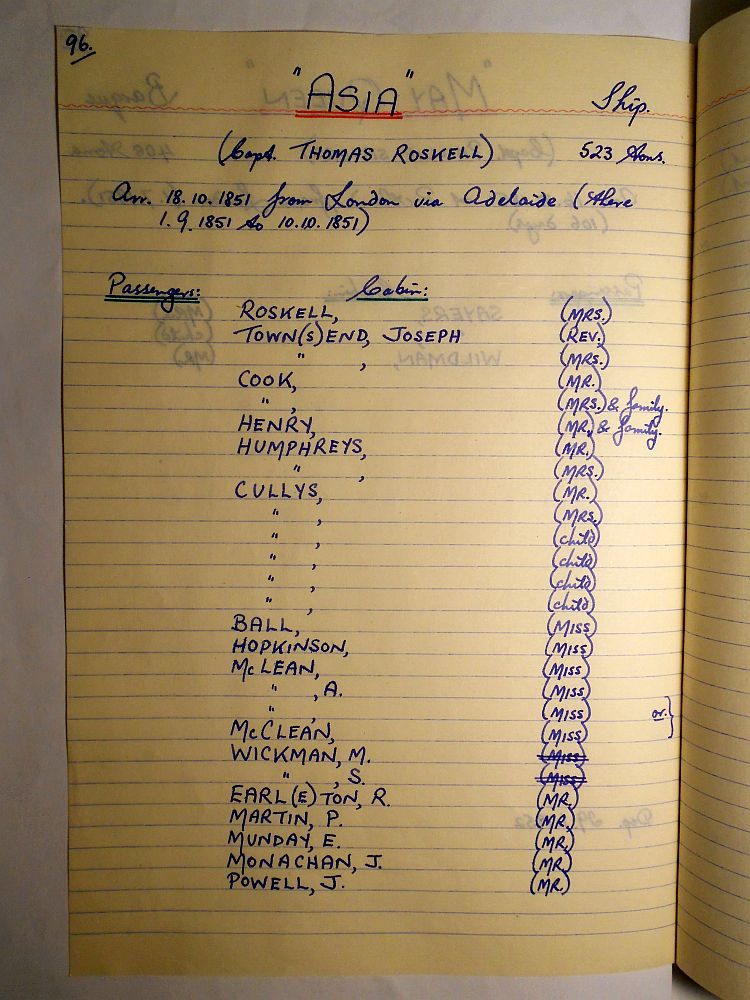 96.
"ASIA" Ship.
(Capt. THOMAS ROSKELL) 523 tons.
Arr. 18.10.1851 from London via Adelaide (there
1.9.1851 to 10.10.1851)
Passengers: Cabin:
ROSKELL, (MRS.)
TOWN(S)END, JOSEPH (REV.)
" , (MRS.)
COOK, (MR.)
" , (MRS.) & family.
HENRY, (MR.) & family.
HUMPHREYS, (MR.)
" , (MRS.)
CULLYS, (MR.)
" , (MRS.)
" , (child)
" , (child)
" , (child)
" , (child)
BALL, (MISS)
HOPKINSON, (MISS)
McLEAN, (MISS)
" , A. (MISS)
" , (MISS) or }
McCLEAN, (MISS)
WICKMAN, M. (MISS)
" , S. (MISS)
EARL(E)TON, R. (MR.)
MARTIN, P. (MR.)
MUNDAY, E. (MR.)
MONACHAN, J. (MR.)
POWELL, J. (MR.)